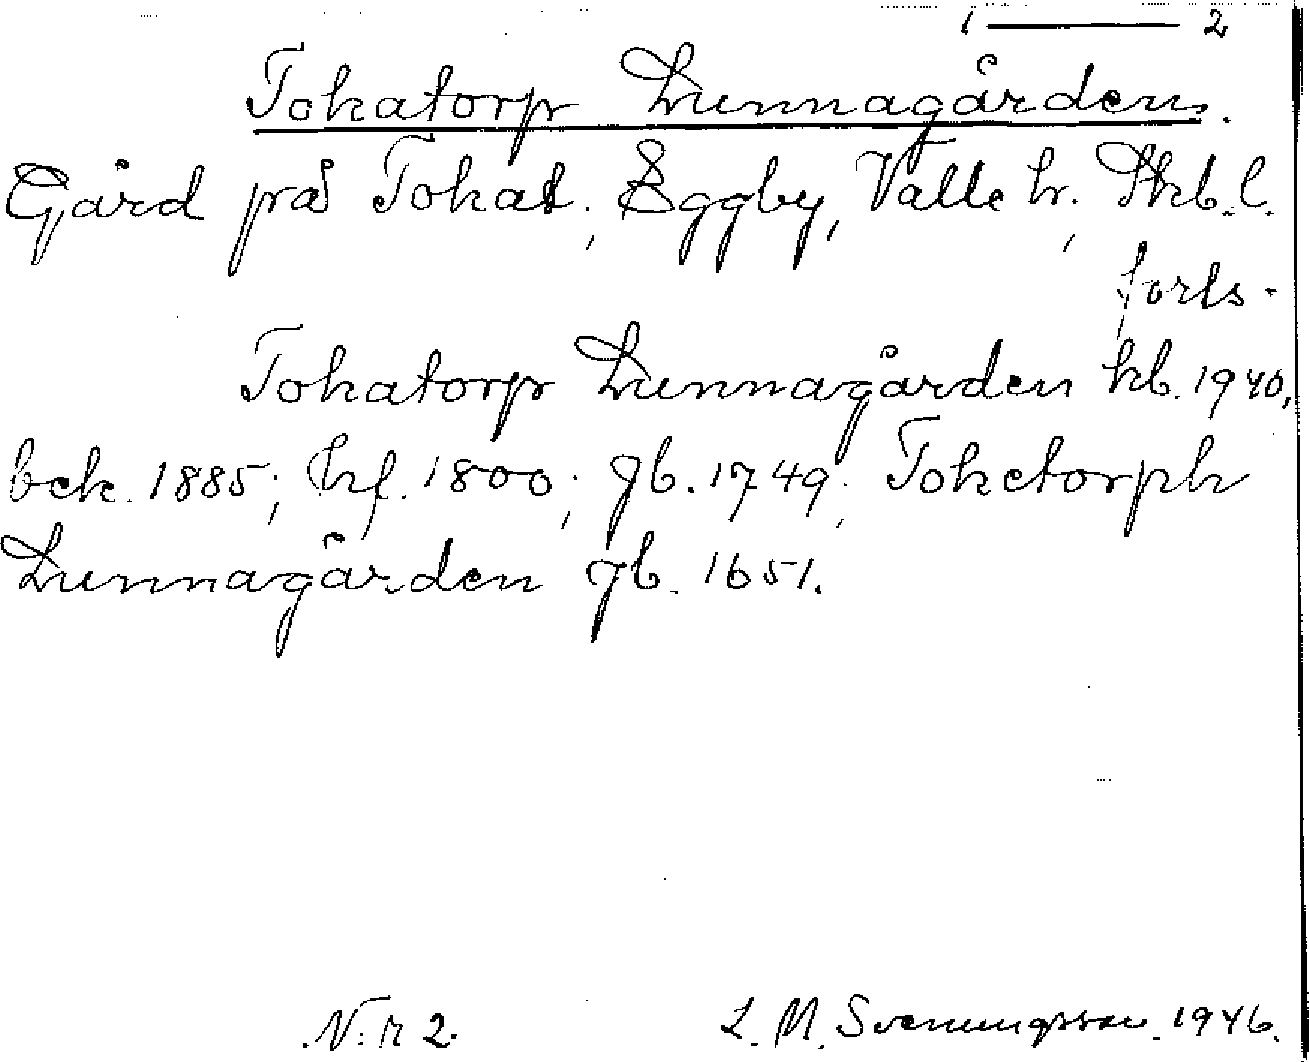 1 — 2
Tokatorp Lunnagården.
Gård på Tokat., Eggby, Valle hr., Skb. l.
forts.
Tokatorp Lunnagården kb. 1940,
bek. 1885; hf. 1800; jb. 1749; Toketorph
Lunnagården jb. 1651.
N:r 2.
L. M. Svenungsson. 1946.